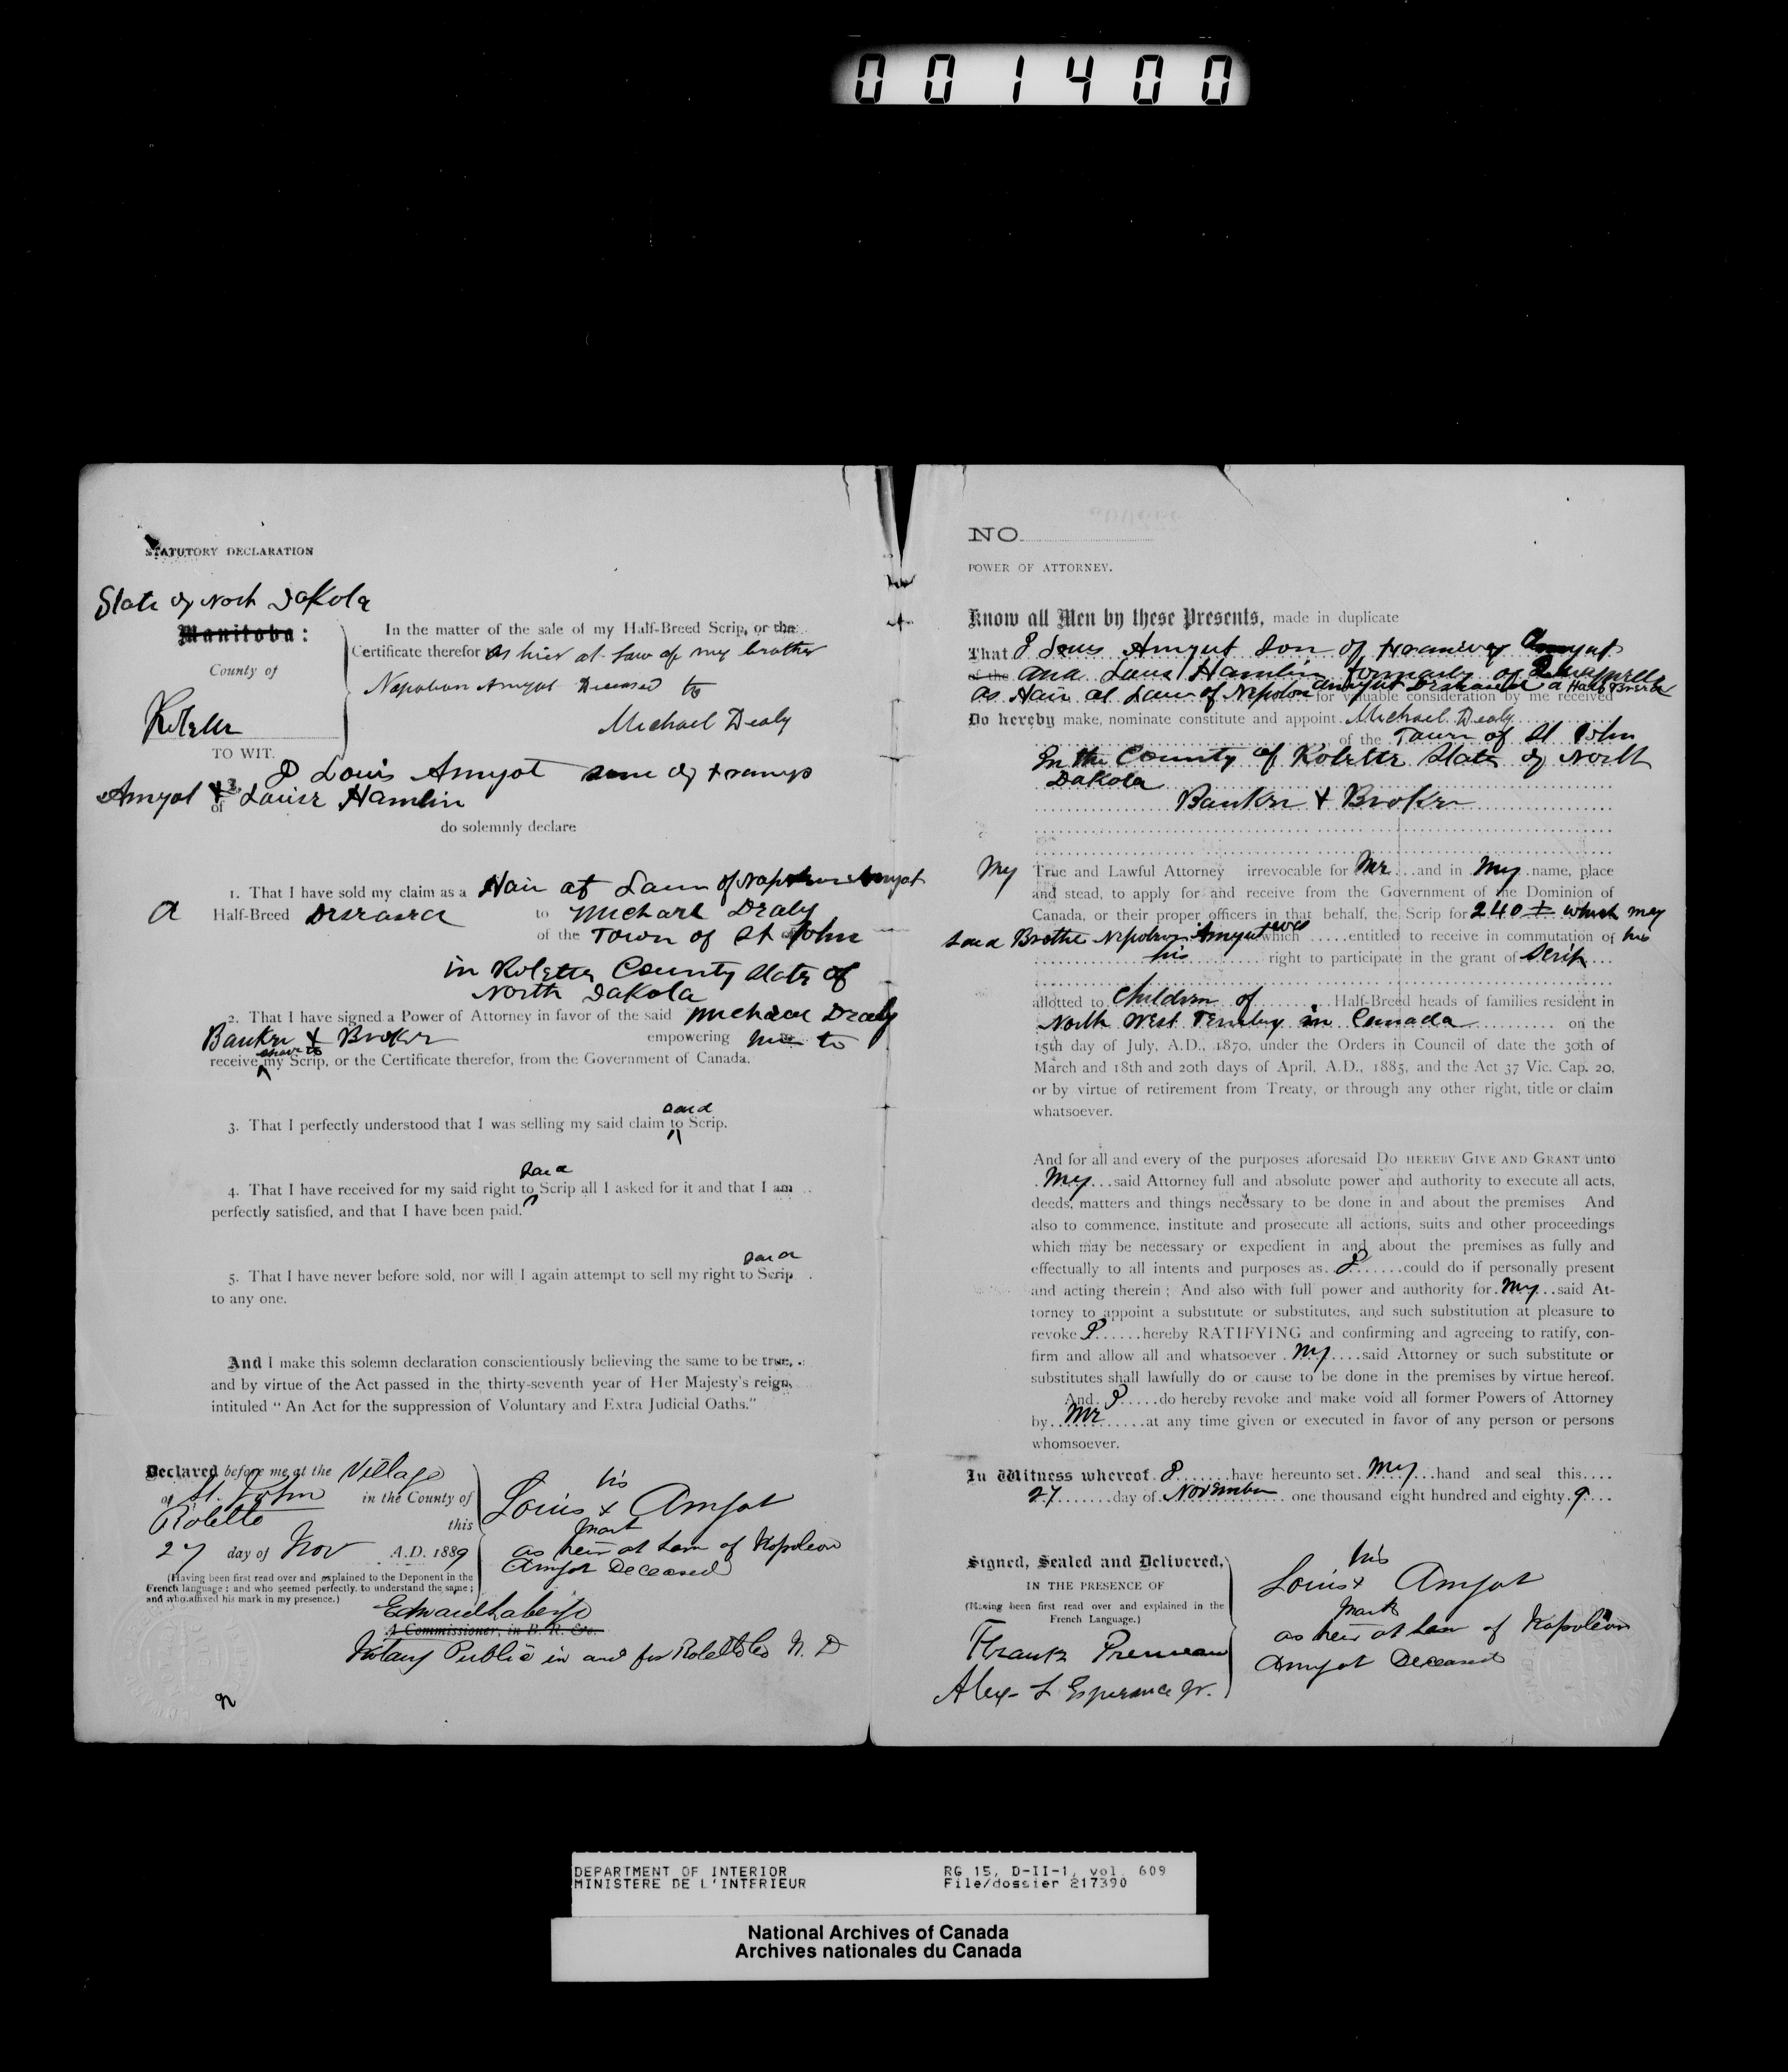 001400
STATUTORY DECLARATION
State of North Dakota
Manitoba:
County of
Rolette
TO WIT.
In the matter of the sale of my Half-Breed Scrip, or the
Certificate therefor As hier at Law of my brother
Napoleon Amyot Deceased to
Michael Dealy
I Louis Amyot
Amyot & Louise Hamlin
of
do solemnly declare
1. That I have sold my claim as a Hair at Law of Napoleon Amyot
a Half-Breed Deseased to Michael Dealy
of the Town of St John
in Rolette County State of
North Dakota
2. That I have signed a Power of Attorney in favor of the said Michael Dealy
Banker & Broker empowering him to
receive my Scrip, or the Certificate therefor, from the Government of Canada.
said
3. That I perfectly understood that I was selling my said claim to Scrip.
said
4. That I have received for my said right to Scrip all I asked for it and that I am
perfectly satisfied, and that I have been paid.
said
5. That I have never before sold, nor will I again attempt to sell my right to Scrip
to any one.
And I make this solemn declaration conscientiously believing the same to be true,
and by virtue of the Act passed in the thirty-seventh year of Her Majesty's reign,
intituled "An Act for the suppression of Voluntary and Extra Judicial Oaths."
Declared before me at the Village
of St. John in the County of
Rolette this
27 day of Nov A.D. 1889
(Having been first read over and explained to the Deponent in the
French language; and who seemed perfectly to understand the same;
and who affixed his mark in my presence.)
his
Louis x Amyot
mark
as heir at Law of Napoleon
Amyot Deceased
Edward Laberge
A Commissioner, in B. R. &c.
Notary Public in and for Rolette Co N. D
NO
POWER OF ATTORNEY.
Know all Men by these Presents, made in duplicate
That I Louis Amyot Son of Amyot
of the and Louis Hamlin formarly of Qu'appelle
As Hair at Law of Napolon Amyot Deseased a Half Breed for valuable consideration by me received
Do hereby make, nominate constitute and appoint Michael Dealy
of the Town of St John
In the County of Rolette State of North
Dakola
Banker & Broker
My True and Lawful Attorney irrevocable for Me and in My name, place
and stead, to apply for and receive from the Government of the Dominion of
Canada, or their proper officers in that behalf, the Scrip for 240 which my
said Brothe Napoleon Amyot was which entitled to receive in commutation of his
his right to participate in the grant of Scrip
allotted to Children of Half-Breed heads of families resident in
North West Territory in Canada on the
15th day of July, A.D., 1870, under the Orders in Council of date the 30th of
March and 18th and 20th days of April, A.D., 1885, and the Act 37 Vic. Cap. 20,
or by virtue of retirement from Treaty, or through any other right, title or claim
whatsoever.
And for all and every of the purposes aforesaid DO HEREBY GIVE AND GRANT unto
My said Attorney full and absolute power and authority to execute all acts,
deeds, matters and things necessary to be done in and about the premises And
also to commence, institute and prosecute all actions, suits and other proceedings
which may be necessary or expedient in and about the premises as fully and
effectually to all intents and purposes as I could do if personally present
and acting therein; And also with full power and authority for My said At-
torney to appoint a substitute or substitutes, and such substitution at pleasure to
revoke I hereby RATIFYING and confirming and agreeing to ratify, con-
firm and allow all and whatsoever My said Attorney or such substitute or
substitutes shall lawfully do or cause to be done in the premises by virtue hereof.
And I do hereby revoke and make void all former Powers of Attorney
by Me at any time given or executed in favor of any person or persons
whomsoever.
In Witness whereof I have hereunto set My hand and seal this
27 day of November one thousand eight hundred and eighty 9
Signed, Sealed and Delivered,
IN THE PRESENCE OF
(Having been first read over and explained in the
French Language.)
Alex L Esperance Jr.
his
Louis x Amyot
mark
as heir at Law of Napoleon
Amyot Deceased
DEPARTMENT OF INTERIOR
MINISTERE DE L'INTERIEUR
RG 15, D-II-1, vol. 609
File/dossier 217390
National Archives of Canada
Archives nationales du Canada